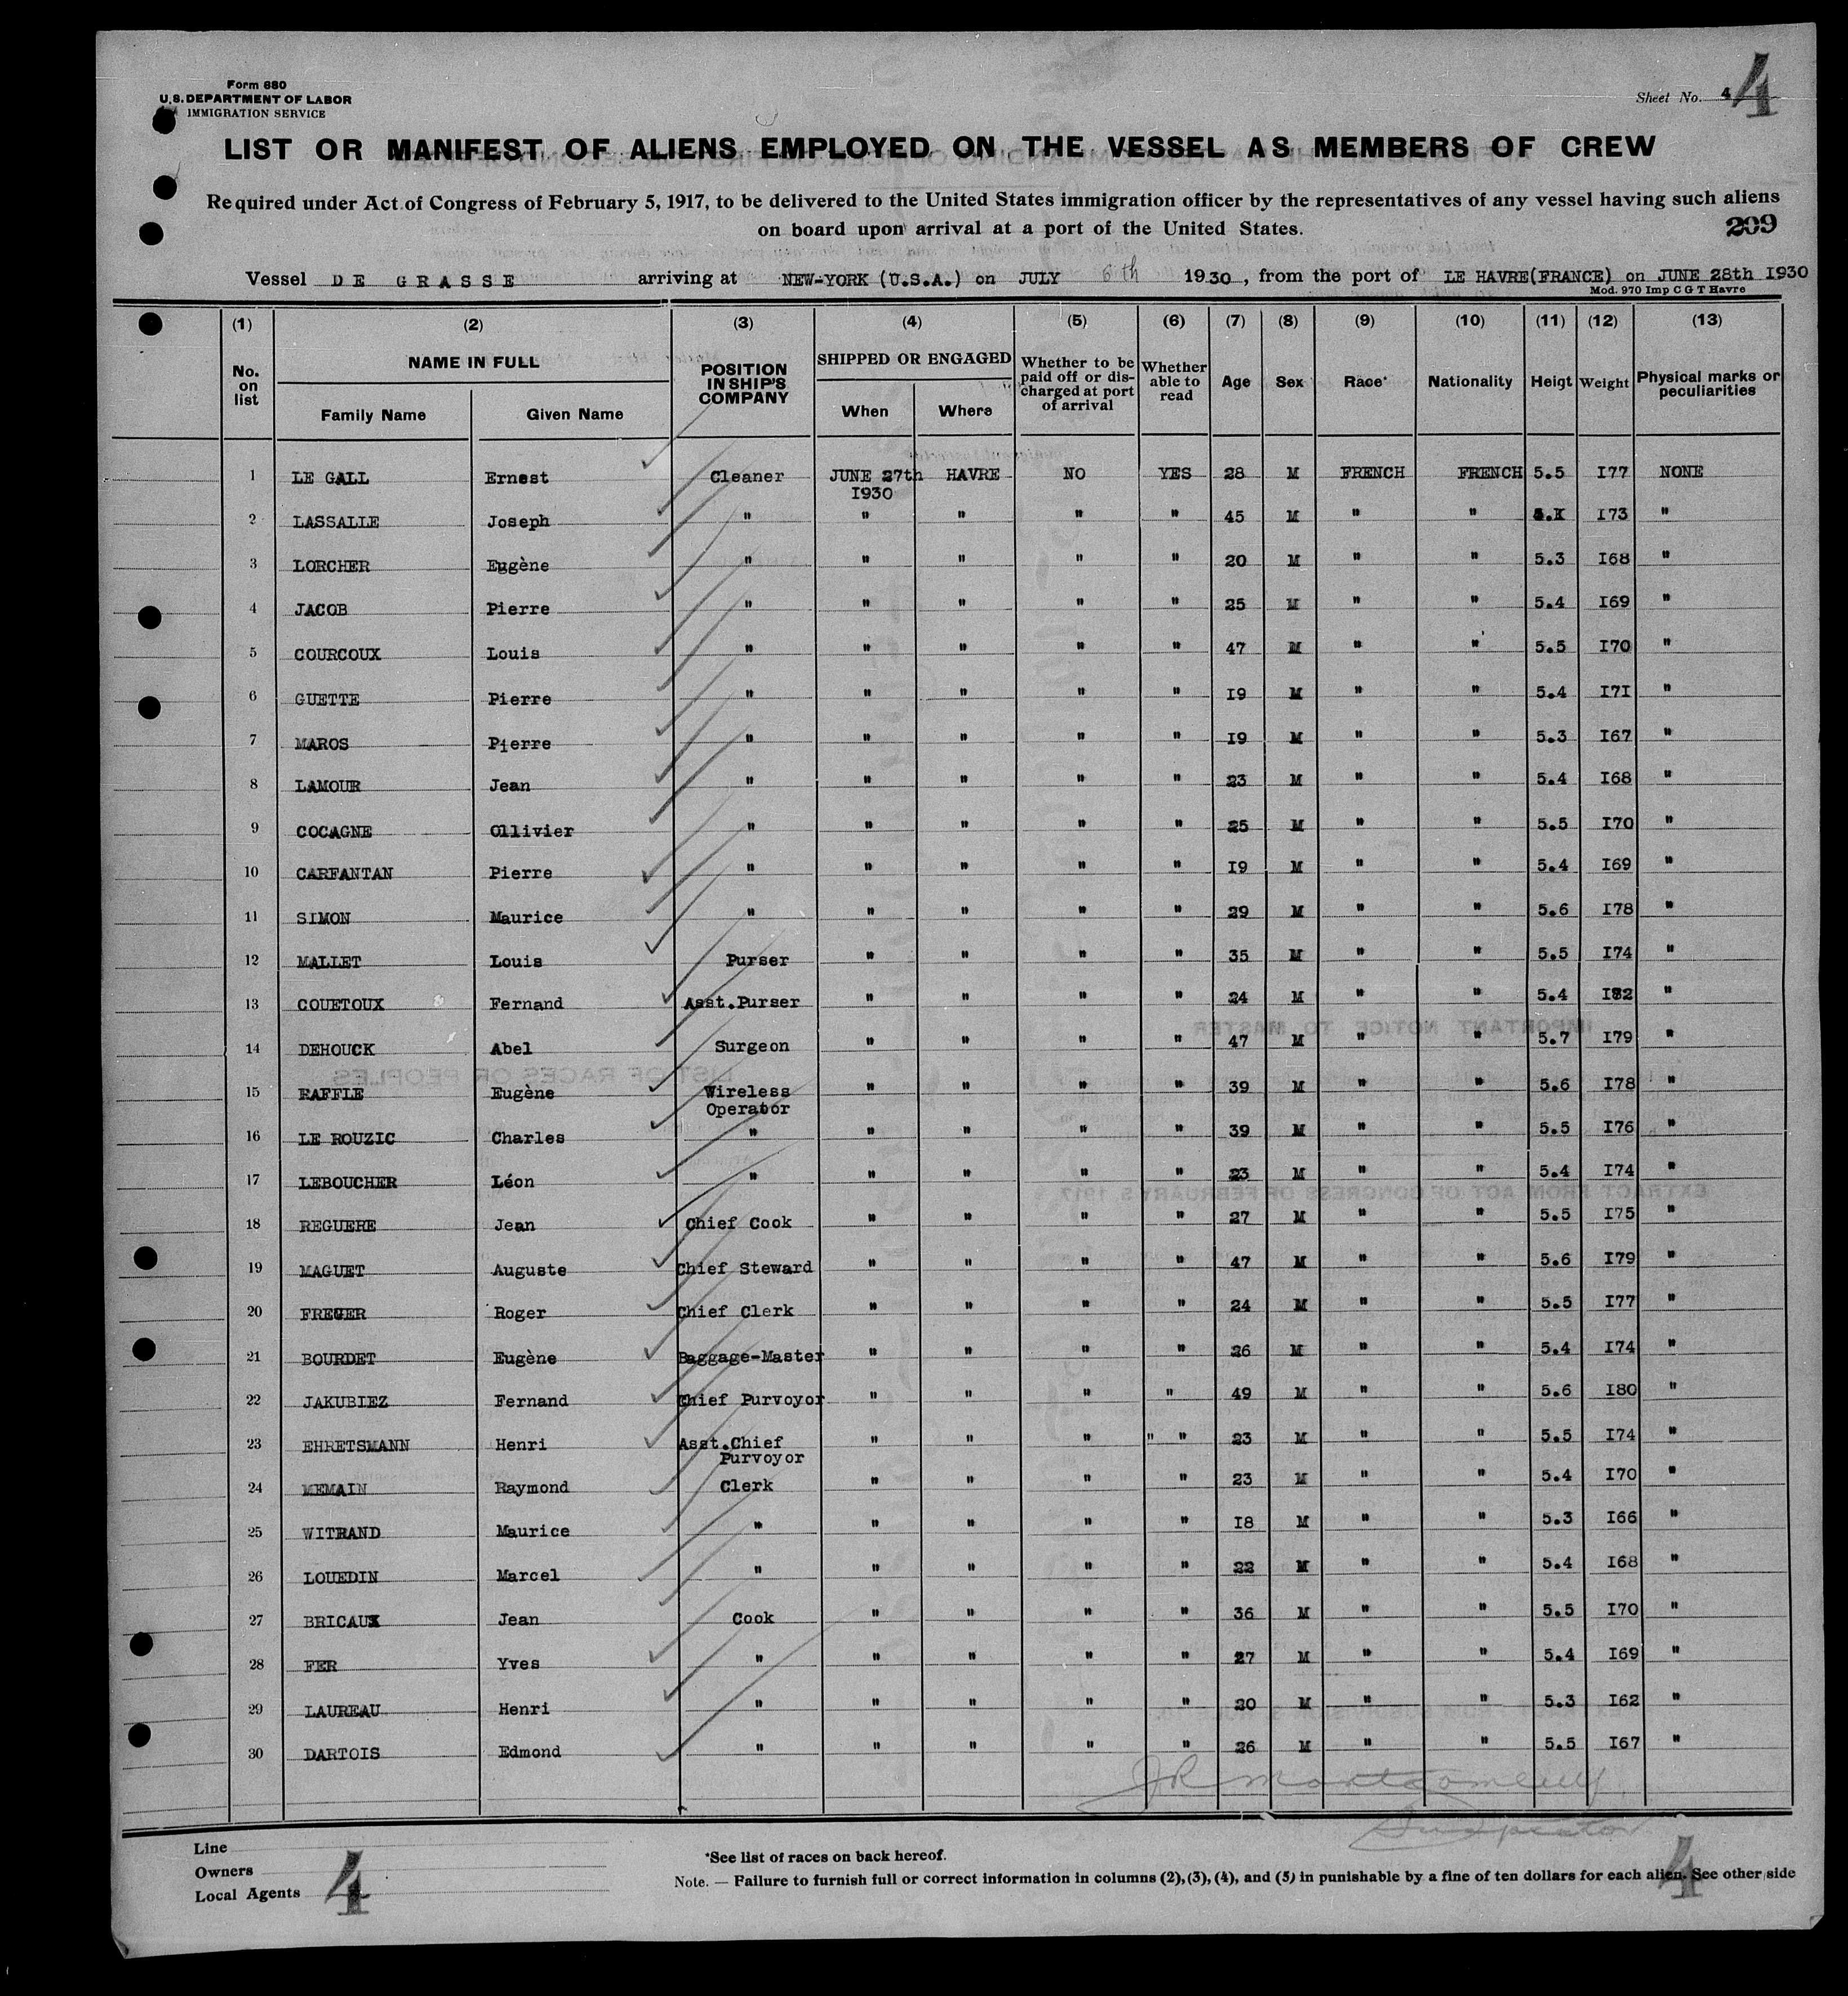 Form 680
U.S. DEPARTMENT OF LABOR
IMMIGRATION SERVICE
Sheet No. 4 4
LIST OR MANIFEST OF ALIENS EMPLOYED ON THE VESSEL AS MEMBERS OF CREW
Required under Act of Congress of February 5, 1917, to be delivered to the United States immigration officer by the representatives of any vessel having such aliens
on board upon arrival at a port of the United States.
209
Vessel DE GRASSE arriving at NEW-YORK (U.S.A.) on JULY 6th 1930, from the port of LE HAVRE(FRANCE) on JUNE 28th I930
Mod. 970 Imp C G T Havre
(1) (2) (3) (4) (5) (6) (7) (8) (9) (10) (11) (12) (13)
No. on list NAME IN FULL Family Name Given Name POSITION IN SHIP'S COMPANY SHIPPED OR ENGAGED When Where Whether to be paid off or discharged at port of arrival Whether able to read Age Sex Race* Nationality Heigt Weight Physical marks or peculiarities
1 LE GALL Ernest Cleaner JUNE 27th I930 HAVRE NO YES 28 M FRENCH FRENCH 5.5 I77 NONE
2 LASSALLE Joseph " " " " " 45 M " " I73 "
3 LORCHER Eugène " " " " " 20 M " " 5.3 I68 "
4 JACOB Pierre " " " " " 25 M " " 5.4 I69 "
5 COURCOUX Louis " " " " " 47 M " " 5.5 I70 "
6 GUETTE Pierre " " " " " I9 M " " 5.4 I7I "
7 MAROS Pierre " " " " " I9 M " " 5.3 I67 "
8 LAMOUR Jean " " " " " 23 M " " 5.4 I68 "
9 COCAGNE Ollivier " " " " " 25 M " " 5.5 I70 "
10 CARFANTAN Pierre " " " " " I9 M " " 5.4 I69 "
11 SIMON Maurice " " " " " 29 M " " 5.6 I78 "
12 MALLET Louis Purser " " " " 35 M " " 5.5 I74 "
13 COUETOUX Fernand Asst.Purser " " " " 24 M " " 5.4 "
14 DEHOUCK Abel Surgeon " " " " 47 M " " 5.7 I79 "
15 RAFFLE Eugène Wireless Operator " " " " 39 M " " 5.6 I78 "
16 LE ROUZIC Charles " " " " " 39 M " " 5.5 I76 "
17 LEBOUCHER Léon " " " " " 23 M " " 5.4 I74 "
18 REGUERE Jean Chief Cook " " " " 27 M " " 5.5 I75 "
19 MAGUET Auguste Chief Steward " " " " 47 M " " 5.6 I79 "
20 FREGER Roger Chief Clerk " " " " 24 M " " 5.5 I77 "
21 BOURDET Eugène Baggage-Master " " " " 26 M " " 5.4 I74 "
22 JAKUBIEZ Fernand Chief Purvoyor " " " " 49 M " " 5.6 I80 "
23 EHRETSMANN Henri Asst.Chief Purvoyor " " " " " 23 M " " 5.5 I74 "
24 MEMAIN Raymond Clerk " " " " 23 M " " 5.4 I70 "
25 WITRAND Maurice " " " " " I8 M " " 5.3 I66 "
26 LOUEDIN Marcel " " " " " 22 M " " 5.4 I68 "
27 BRICAUX Jean Cook " " " " 36 M " " 5.5 I70 "
28 FER Yves " " " " " 27 M " " 5.4 I69 "
29 LAUREAU Henri " " " " " 20 M " " 5.3 I62 "
30 DARTOIS Edmond " " " " " 26 M " " 5.5 I67 "
JR Montgomery
Inspector
Line
Owners
Local Agents
4
*See list of races on back hereof.
Note. — Failure to furnish full or correct information in columns (2), (3), (4), and (5) in punishable by a fine of ten dollars for each alien. See other side
4